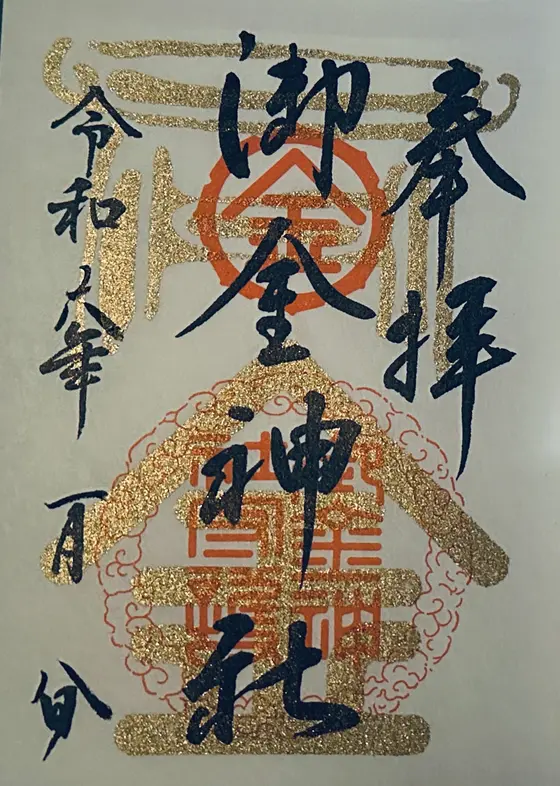 奉拝
御金神社
令和六年一月
金